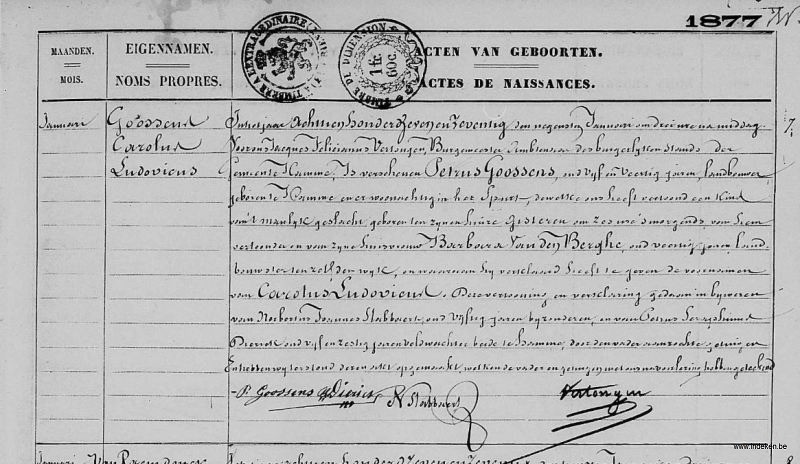 1877
MAANDEN.
MOIS.
EIGENNAMEN.
NOMS PROPRES.
ACTEN VAN GEBOORTEN.
ACTES DE NAISSANCES.
TIMBRE DE DIMENSION
1 fr.
60c.
Januari
Goossens
Carolus
Ludovicus
7.
In het jaar achtien honderd zeven en zeventig den negensten Januari om drie ure na middag
Voor ons Jacques Felicianus Vertongen, Burgemeester Ambtenaar des burgerlyken stands der
Gemeente Hamme, Is verschenen Petrus Goossens, oud vyf en veertig jaren, landbouwer
geboren te Hamme en er woonachtig in het, dewelke ons heeft vertoond een kind
van 't manlyk geslacht, geboren ten zynen huize gisteren om zes ure 's morgends, van hem
vertooner en van zyne huisvrouw Barbara Van den Berghe, oud veertig jaren, land-
bouwster ten zelfden wyk, en waaraan hy verklaard heeft te geven de voornamen
van Carolus Ludovicus. Deze vertooning en verklaring gedaan in bywezen
van Norbertus Joannes Stabbaert, oud vyftig jaren byzonderen, en van Petrus Seraphinus
Dierick oud vyf en zestig jaren veldwachter beide te Hamme, door den vader aanzochte getuigen
En hebben wy terstond deren akt opgemaakt, welken de vader en getuigen met ons na voorlezing hebben geteekend
P. Goossens
Dierick
N Stabbaert
Vertongen
Januari
8
www.indeken.be